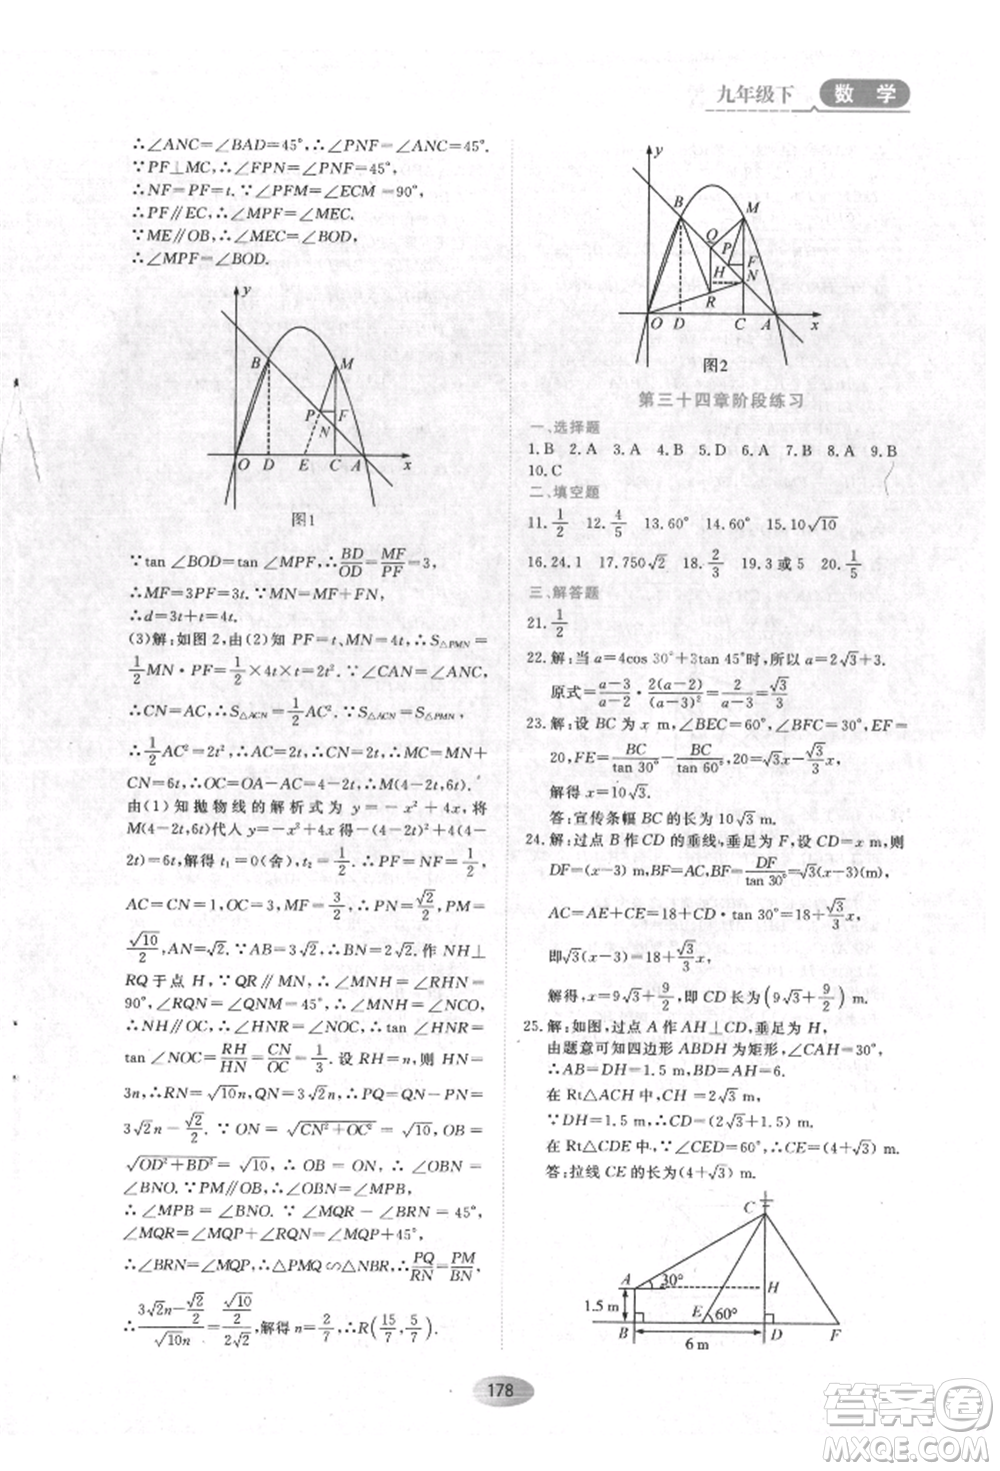 九年级下 数 学
∴∠ANC=∠BAD=45°,∴∠PNF=45°.
∵PF⊥MC,∴∠FPN=∠PNF=45°,
∴NF=PF=t.∵∠PFM=∠ECM=90°,
∴PF∥EC,∴∠MPF=∠MEC.
∵ME∥OB,∴∠MEC=∠BOD,
∴∠MPF=∠BOD.
y
B
M
P
F
N
O
D
E
C
A
x
图1
∵tan∠BOD=tan∠MPF,∴BD/OD=MF/PF=3,
∴MF=3PF=3t.∵MN=MF+FN,
∴d=3t+t=4t.
(3)解:如图2,由(2)知 PF=t、MN=4t,∴S△PMN=
1/2 MN·PF=1/2×4t×t=2t².∵∠CAN=∠ANC,
∴CN=AC,∴S△ACN=1/2AC².∵S△ACN=S△PMN,
∴1/2AC²=2t²,∴AC=2t.∵CN=2t,∴MC=MN+
CN=6t,∴OC=OA-AC=4-2t,∴M(4-2t,6t).
由(1)知抛物线的解析式为y=-x²+4x,将
M(4-2t,6t)代入y=-x²+4x得-(4-2t)²+4(4-
2t)=6t,解得t₁=0(舍),t₂=1/2.∴PF=NF=1/2,
AC=CN=1,OC=3,MF=3/2,∴PN=√2/2,PM=
√10/2,AN=√2.∵AB=3√2,∴BN=2√2.作NH⊥
RQ于点H,∵QR∥MN,∴∠MNH=∠RHN=
90°,∠RQN=∠QNM=45°,∴∠MNH=∠NCO,
∴NH∥OC,∴∠HNR=∠NOC,∴tan∠HNR=
tan∠NOC=RH/HN=CN/OC=1/3.设RH=n,则HN=
3n,∴RN=√10n,QN=3√2n,∴PQ=QN-PN=
3√2n-√2/2.∵ON=√(CN²+OC²)=√10,OB=
√(OD²+BD²)=√10,∴OB=ON,∴∠OBN=
∠BNO.∵PM∥OB,∴∠OBN=∠MPB,
∴∠MPB=∠BNO.∵∠MQR-∠BRN=45°,
∠MQR=∠MQP+∠RQN=∠MQP+45°,
∴∠BRN=∠MQP,∴△PMQ∽△NBR,∴PQ/RN=PM/BN,
∴(3√2n-√2/2)/(√10n)=(√10/2)/(2√2),解得n=2/7,∴R(15/7,5/7).
y
B
M
Q
P
F
H
N
R
O
D
C
A
x
图2
第三十四章阶段练习
一、选择题
1.B 2.A 3.A 4.B 5.D 6.B 7.B 8.A 9.B
10.C
二、填空题
11.1/2 12.4/5 13.60° 14.60° 15.√10
16.24.1 17.750√2 18.2/3 19.3或5 20.1/5
三、解答题
21.1/2
22.解:当a=4cos 30°+3tan 45°时,所以a=2√3+3.
原式=(a-3)/(a-2)·2(a-2)/(a-3)²=2/(a-3)=√3/3.
23.解:设BC为x m,∠BEC=60°,∠BFC=30°,EF=
20,FE=BC/tan 30°-BC/tan 60°,20=√3x-√3/3x,
解得x=10√3.
答:宣传条幅BC的长为10√3 m.
24.解:过点B作CD的垂线,垂足为F,设CD=x m,则
DF=CD-CF=(x-3)m,BF=AC,BF=DF/tan 30°=√3(x-3)m,
AC=AE+CE=18+CD·tan 30°=18+√3/3x,
即√3(x-3)=18+√3/3x,
解得,x=9√3+9/2,即CD长为(9√3+9/2)m.
25.解:如图,过点A作AH⊥CD,垂足为H,
由题意可知四边形ABDH为矩形,∠CAH=30°,
∴AB=DH=1.5 m,BD=AH=6.
在Rt△ACH中,CH=2√3 m,
∵DH=1.5 m,∴CD=(2√3+1.5)m,
在Rt△CDE中,∵∠CED=60°,∴CE=(4+√3)m.
答:拉线CE的长为(4+√3)m.
C
A
30°
H
1.5 m
E
60°
B
D
F
6 m
178
答案圈
MXQE.COM